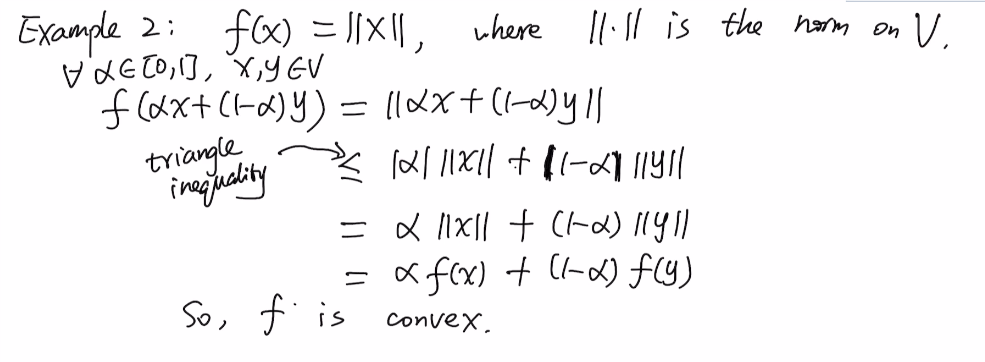 Example 2: f(x) = ||x||, where ||·|| is the norm on V.
∀ α∈[0,1], x,y∈V
f(αx+(1-α)y) = ||αx+(1-α)y||
triangle inequality → ≤ |α| ||x|| + |1-α| ||y||
= α ||x|| + (1-α) ||y||
= α f(x) + (1-α) f(y)
So, f is convex.